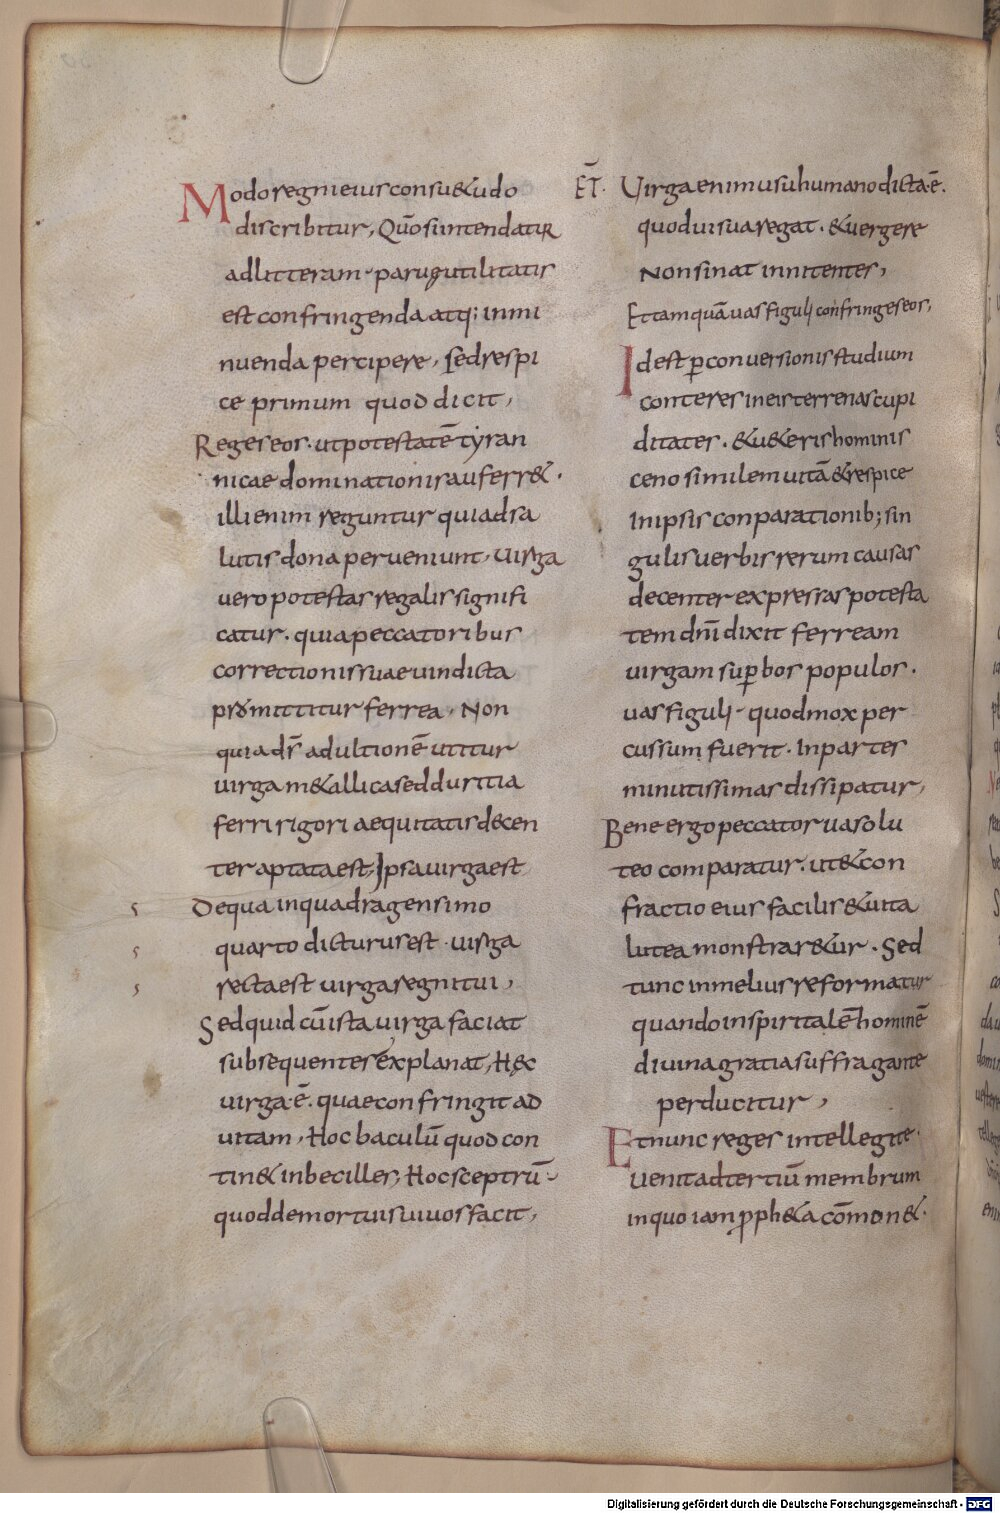 Modo regni eius consu&udo
discribitur, Quō si intendatur
ad litteram parū utilitatis
est confringenda atq; inmi
nuenda percipere, sed respi
ce primum quod dicit,
Reges eos. ut potestatē tyran
nicae dominationis auferr&.
illi enim reguntur qui ad sa
lutis dona perveniunt, uirga
uero potestas regalis signifi
catur. quia peccatoribus
correctionis suae uindicta
promittitur ferrea, Non
quia dr̄ ad ultionē utitur
uirga m&allica sed duritia
ferri rigori aequitatis decen
ter aptata est, Ipsa uirga est
De qua in quadragensimo
quarto dicturus est. uirga
recta est uirga regni tui,
Sed quid cū ista uirga faciat
subsequenter explanat, Hęc
uirga ē. quae confringit ad
uitam, Hoc baculū quod con
tin& inbecilles, Hoc sceptrū
quod de mortuis uiuos facit,
ET̄. Uirga enim usu humano dicta ē.
quod ui sua regat. & uergere
Non sinat innitentes,
Et tamquā uas figuli confringes eos,
Id est p conuersionis studium
conteres in eis terrenas cupi
ditates. & u&eris hominis
ceno similem uitā & respice
In ipsis conparationib; sin
gulis uerbis rerum causas
decenter expressas potesta
tem dn̄i dixit ferream
uirgam supbos populos.
uas figuli quod mox per
cussum fuerit. In partes
minutissimas dissipatur,
Bene ergo peccator uaso lu
teo comparatur. ut & con
fractio eius facilis & uita
lutea monstrar&ur. Sed
tunc in melius reformatur
quando in spiritalē hominē
diuina gratia suffragante
perducitur,
Et nunc reges intellegite.
Uenit ad tertiū membrum
in quo iam pph&a cōmon&.
Digitalisierung gefördert durch die Deutsche Forschungsgemeinschaft - DFG